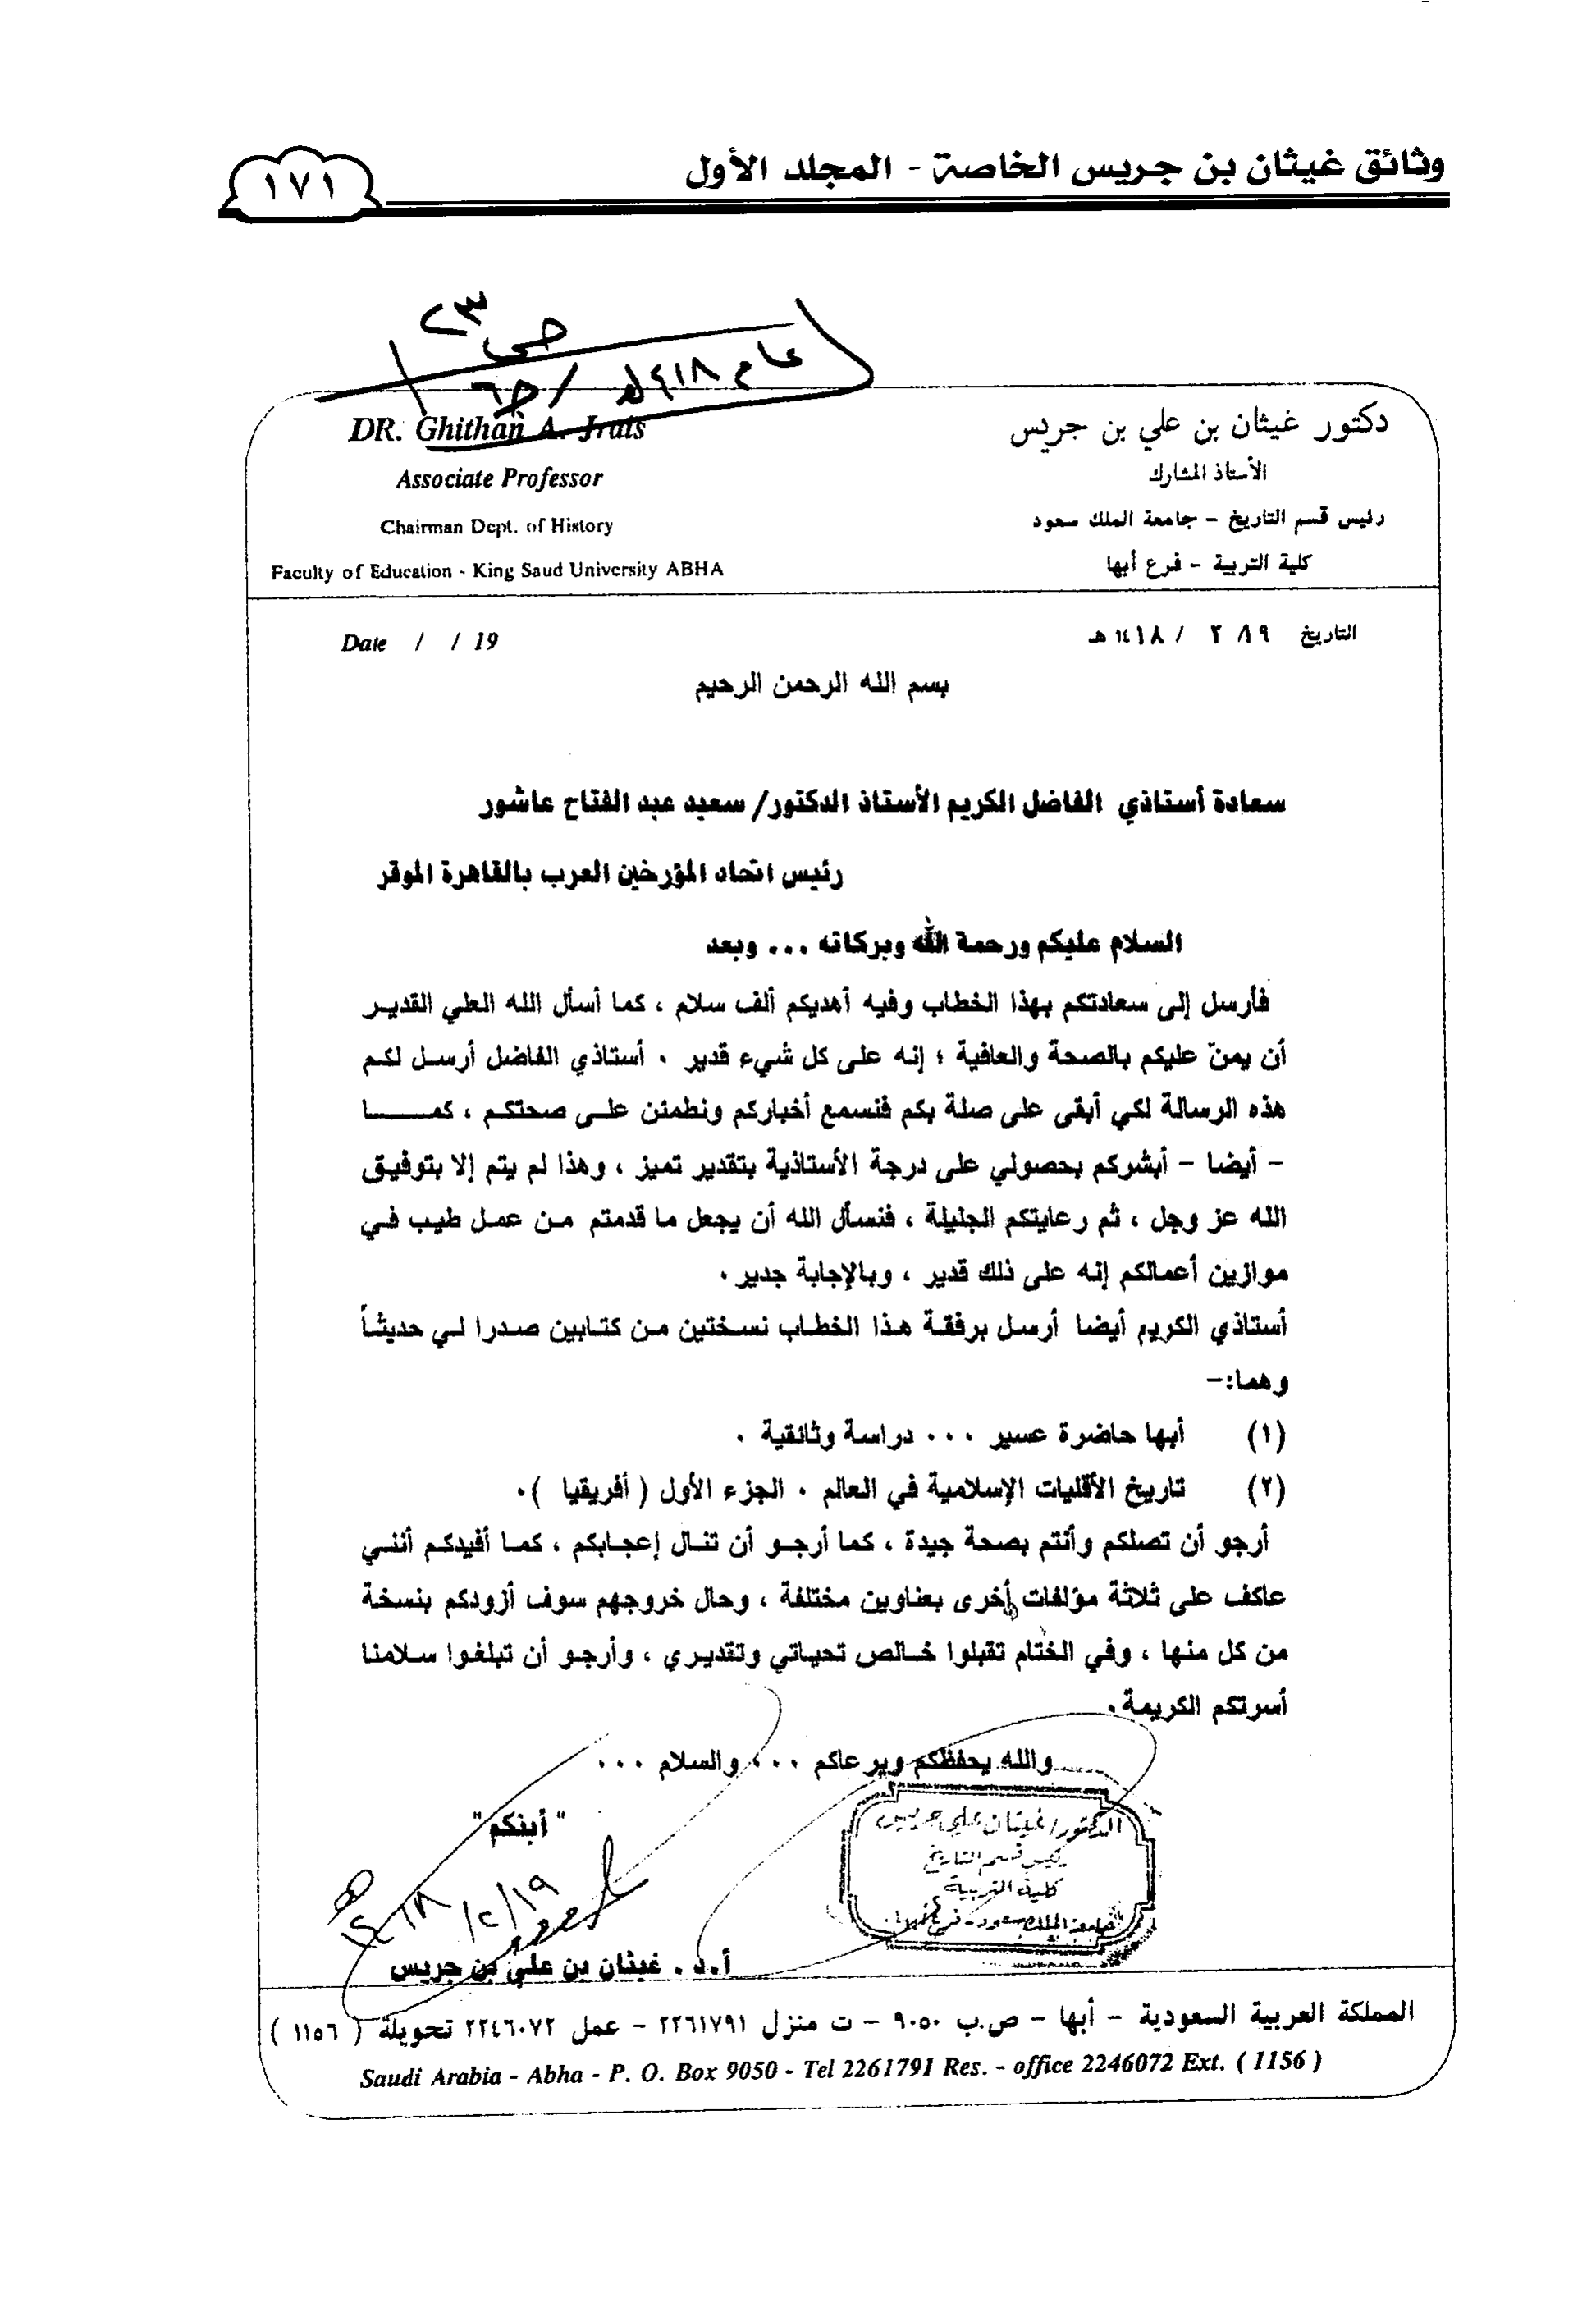 وثائق غيثان بن جريس الخاصة - المجلد الأول
١٧١
ص ٢٣
عام ٤١٨هـ /
DR. Ghithan A. Jrais
Associate Professor
Chairman Dept. of History
Faculty of Education - King Saud University ABHA
دكتور غيثان بن علي بن جريس
الأستاذ المشارك
رئيس قسم التاريخ - جامعة الملك سعود
كلية التربية - فرع أبها
Date / / 19
التاريخ ١٩/ ٢ / ١٤١٨هـ
بسم الله الرحمن الرحيم
سعادة أستاذي الفاضل الكريم الأستاذ الدكتور/ سعيد عبد الفتاح عاشور
رئيس اتحاد المؤرخين العرب بالقاهرة الموقر
السلام عليكم ورحمة الله وبركاته ... وبعد
فأرسل إلى سعادتكم بهذا الخطاب وفيه أهديكم ألف سلام ، كما أسأل الله العلي القدير
أن يمنّ عليكم بالصحة والعافية ؛ إنه على كل شيء قدير . أستاذي الفاضل أرسل لكم
هذه الرسالة لكي أبقى على صلة بكم فنسمع أخباركم ونطمئن على صحتكم ، كمــــا
- أيضا - أبشركم بحصولي على درجة الأستاذية بتقدير تميز ، وهذا لم يتم إلا بتوفيق
الله عز وجل ، ثم رعايتكم الجليلة ، فنسأل الله أن يجعل ما قدمتم من عمل طيب في
موازين أعمالكم إنه على ذلك قدير ، وبالإجابة جدير .
أستاذي الكريم أيضا أرسل برفقة هذا الخطاب نسختين من كتابين صدرا لي حديثاً
وهما:-
(١) أبها حاضرة عسير ... دراسة وثائقية .
(٢) تاريخ الأقليات الإسلامية في العالم . الجزء الأول ( أفريقيا ).
أرجو أن تصلكم وأنتم بصحة جيدة ، كما أرجو أن تنال إعجابكم ، كما أفيدكم أنني
عاكف على ثلاثة مؤلفات أخرى بعناوين مختلفة ، وحال خروجهم سوف أزودكم بنسخة
من كل منها ، وفي الختام تقبلوا خالص تحياتي وتقديري ، وأرجو أن تبلغوا سلامنا
أسرتكم الكريمة.
والله يحفظكم ويرعاكم ... ، والسلام ...
" أبنكم "
١٩/٢/١٤١٨هـ
الدكتور/ غيثان علي جريس
رئيس قسم التاريخ
كلية التربية
جامعة الملك سعود - فرع أبها
أ.د . غيثان بن علي بن جريس
المملكة العربية السعودية - أبها - ص.ب ٩٠٥٠ - ت منزل ٢٢٦١٧٩١ - عمل ٢٢٤٦٠٧٢ تحويلة ( ١١٥٦ )
Saudi Arabia - Abha - P. O. Box 9050 - Tel 2261791 Res. - office 2246072 Ext. ( 1156 )